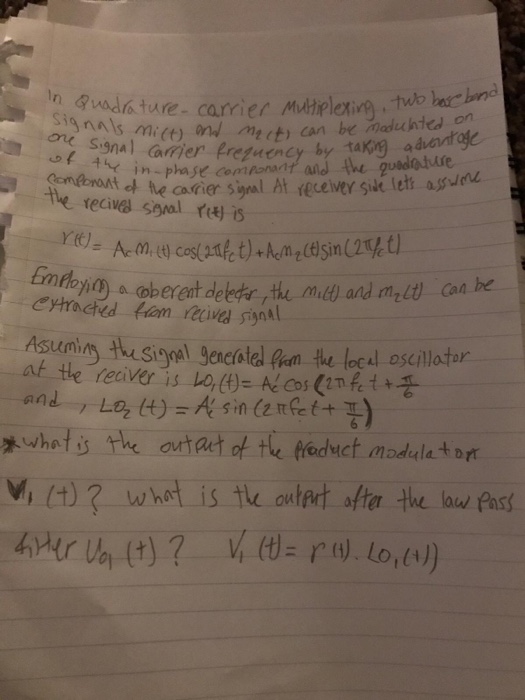 In Quadrature-carrier Multiplexing, two baseband
signals m1(t) and m2(t) can be modulated on
one signal carrier frequency by taking advantage
of the in-phase componant and the quadrature
componant of the carrier signal At receiver side lets assume
the recived signal r(t) is
r(t) = Ac m1(t) cos(2πfct) + Ac m2(t) sin(2πfct)
Employing a coherent detector, the m1(t) and m2(t) can be
extracted from recived signal
Assuming the signal generated from the local oscillator
at the reciver is LO1(t) = A'c cos (2π fct + π/6
and, LO2(t) = A'c sin (2πfct + π/6)
* what is the output of the product modulator
V1(t)? what is the output after the law pass
filter Vo1(t)? V1(t) = r(t). LO1(t))